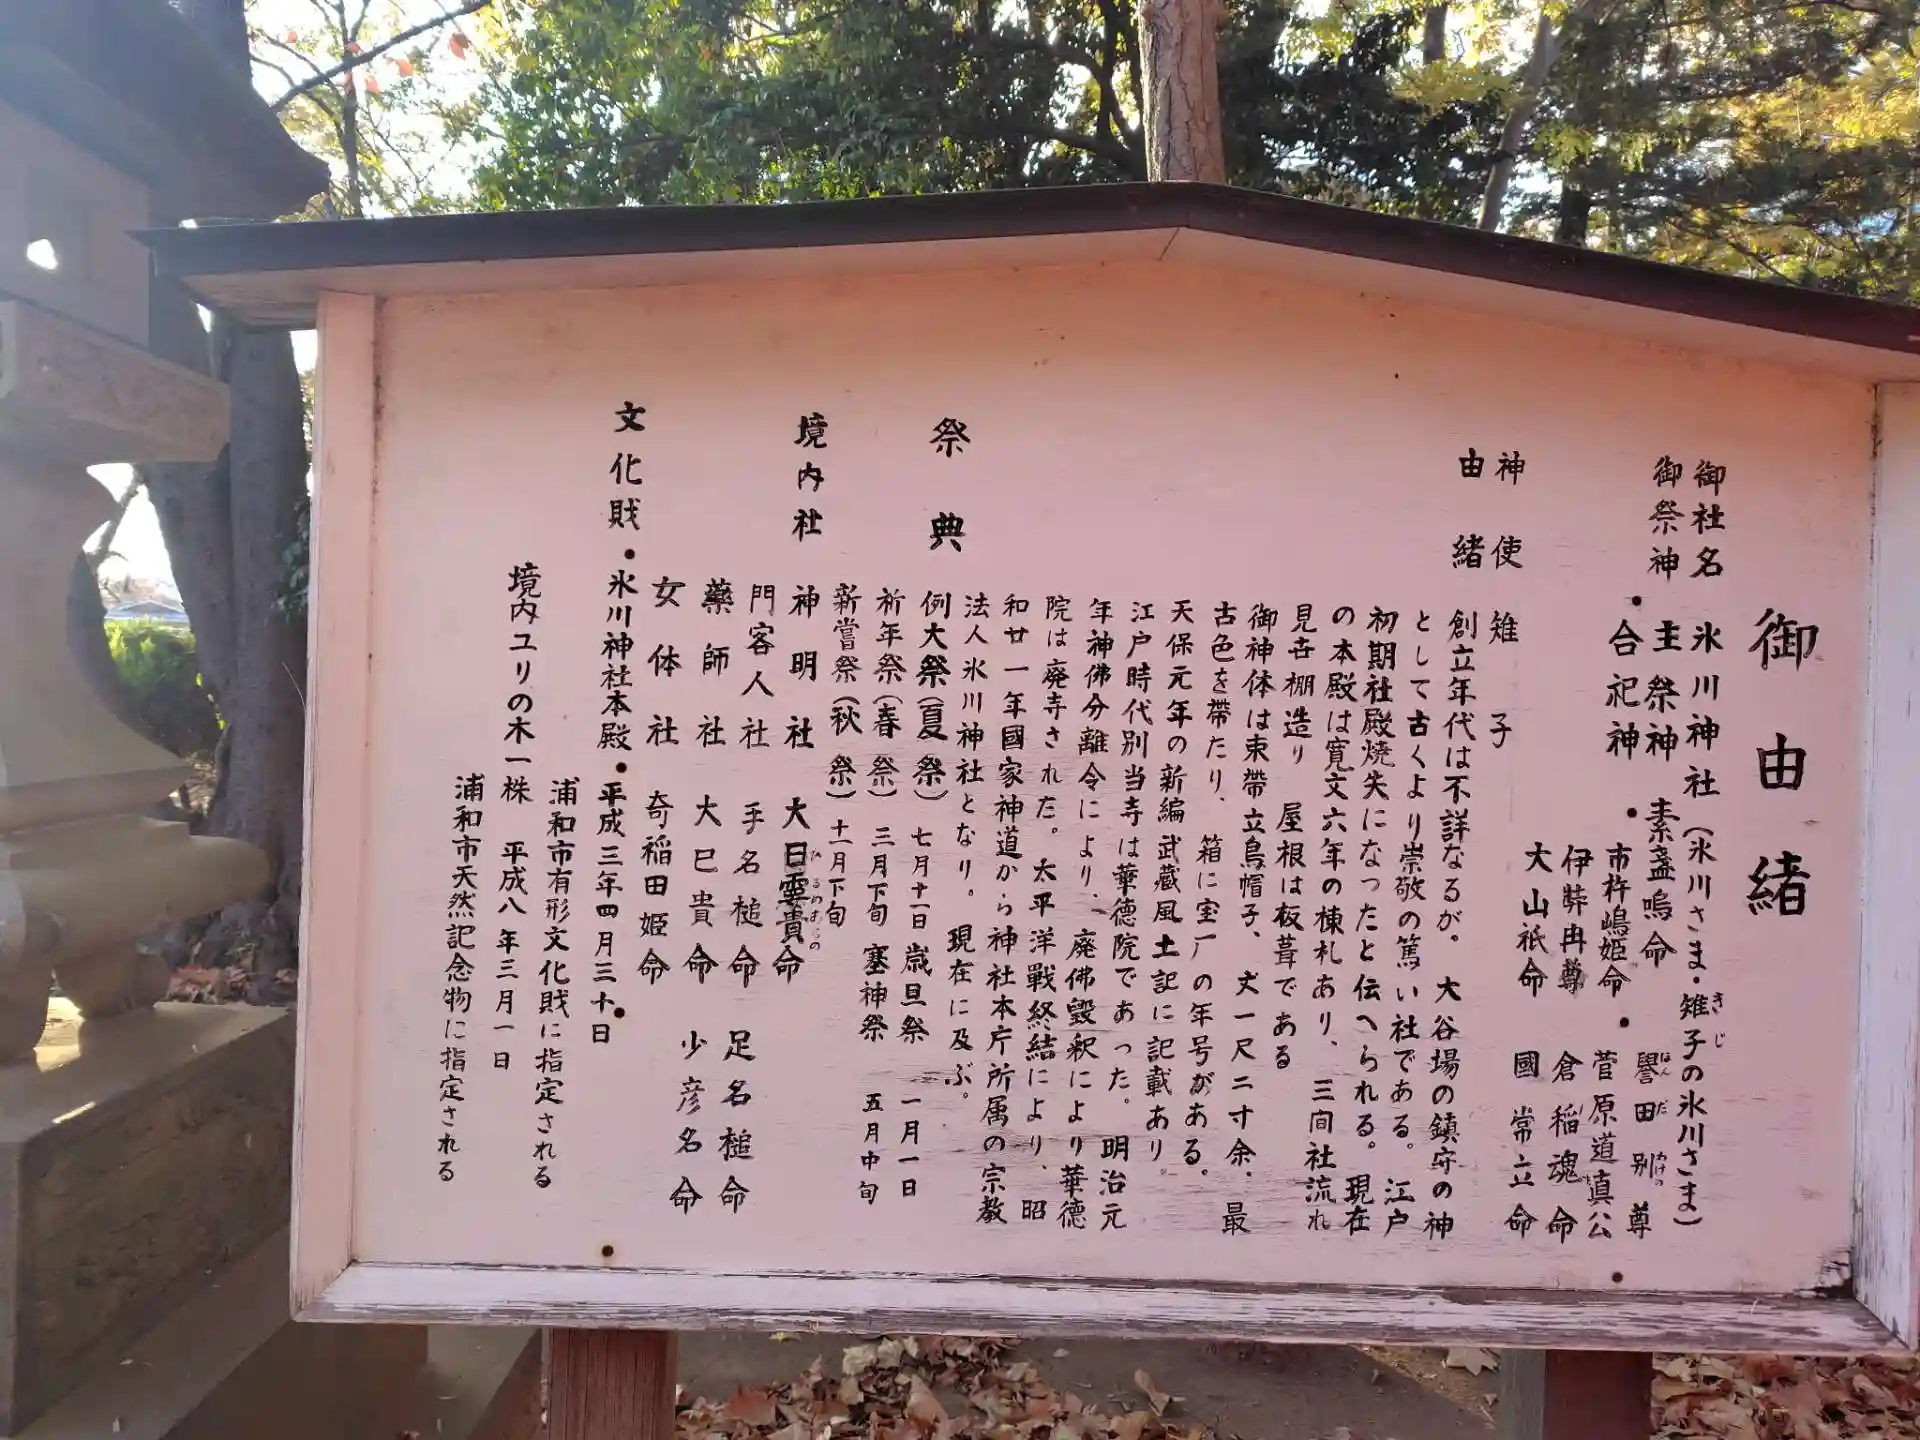 御由緒
御社名 氷川神社(氷川さま・雉子の氷川さま)
きじ
御祭神 主祭神 素盞嗚命
・合祀神 ・市杵嶋姫命・譽田別尊
ほんだわけの
伊弉冉尊 菅原道真公
大山祇命 倉稲魂命
國常立命
神使 雉子
由緒 創立年代は不詳なるが。大谷場の鎮守の神
として古くより崇敬の篤い社である。江戸
初期社殿焼失になったと伝へられる。現在
の本殿は寛文六年の棟札あり、三間社流れ
見世棚造り 屋根は板葺である
御神体は束帶立烏帽子、丈一尺二寸余、最
古色を帶たり、箱に宝厂の年号がある。
天保元年の新編武蔵風土記に記載あり。
江戸時代別当寺は華徳院であった。明治元
年神佛分離令により、廃佛毀釈により華徳
院は廃寺された。太平洋戰終結により、昭
和廿一年國家神道から神社本庁所属の宗教
法人氷川神社となり。現在に及ぶ。
祭典 例大祭(夏祭) 七月十一日 歳旦祭 一月一日
祈年祭(春祭) 三月下旬 塞神祭 五月中旬
新嘗祭(秋祭) 十一月下旬
境内社 神明社 大日孁貴命
ひるめむちの
門客人社 手名槌命 足名槌命
藥師社 大巳貴命 少彦名命
女体社 奇稲田姫命
文化財・氷川神社本殿・平成三年四月三十日
浦和市有形文化財に指定される
境内ユリの木一株 平成八年三月一日
浦和市天然記念物に指定される